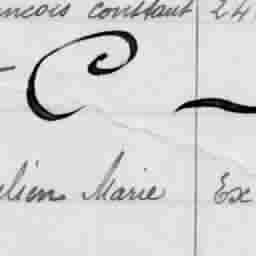 ncois constant 24
C
lien Marie Ex